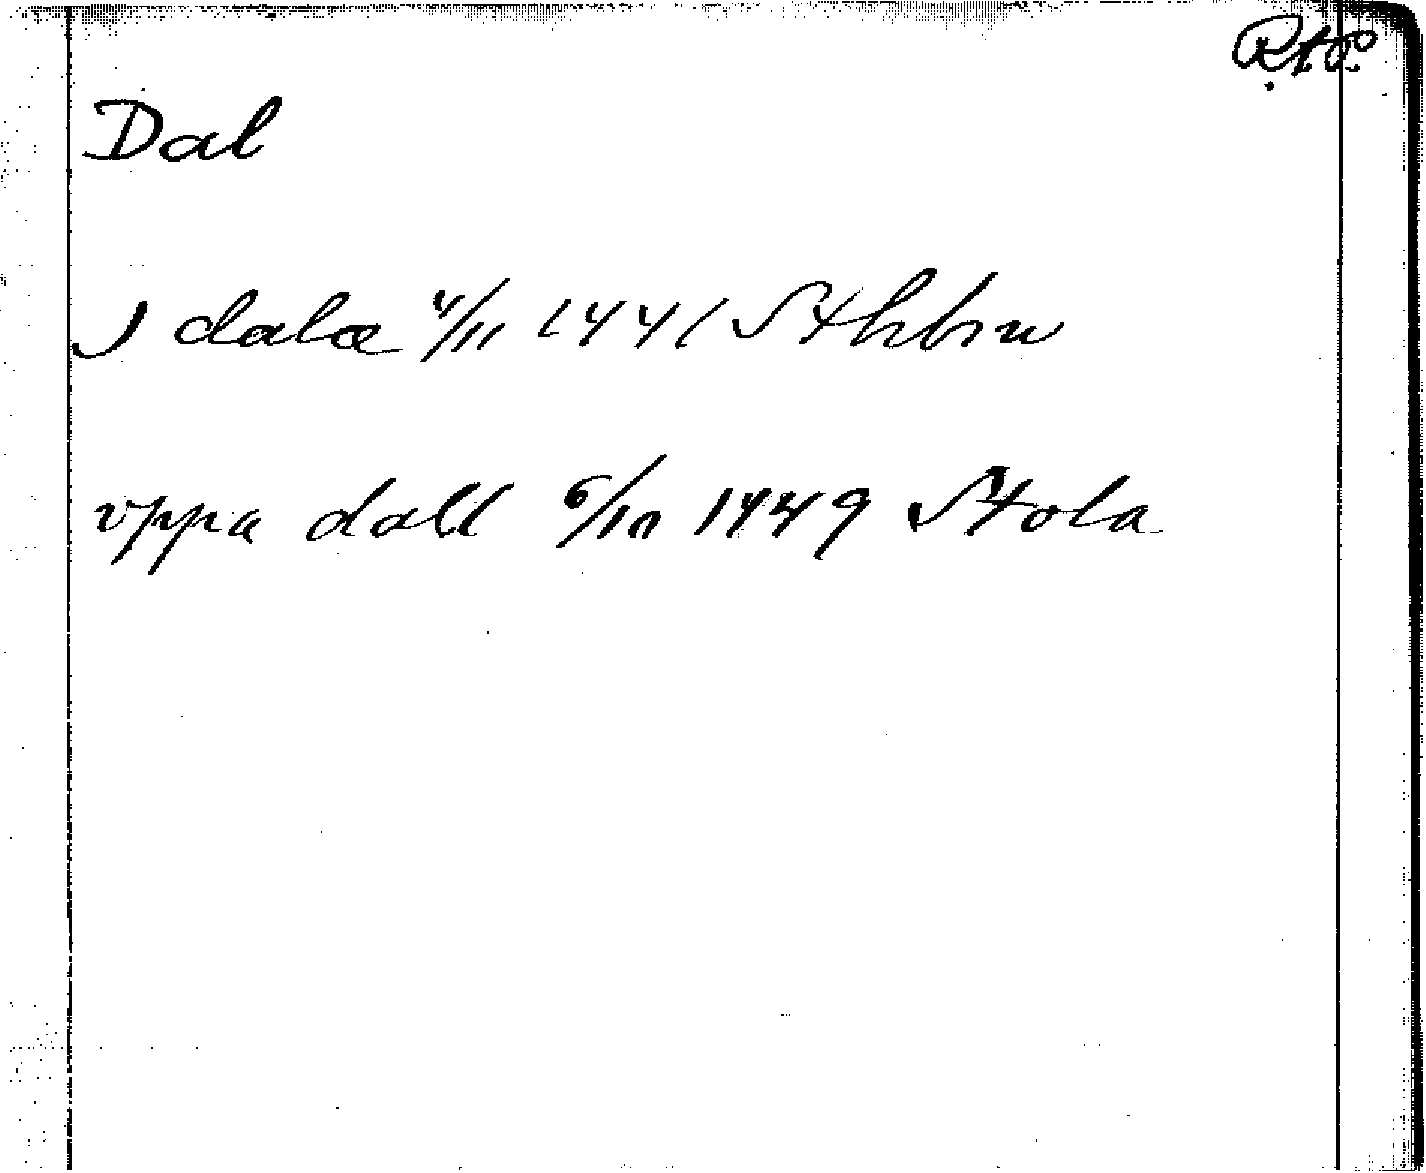 Dal
J dala 4/11 1441 Sthbm
vppa dall 6/10 1449 Stola